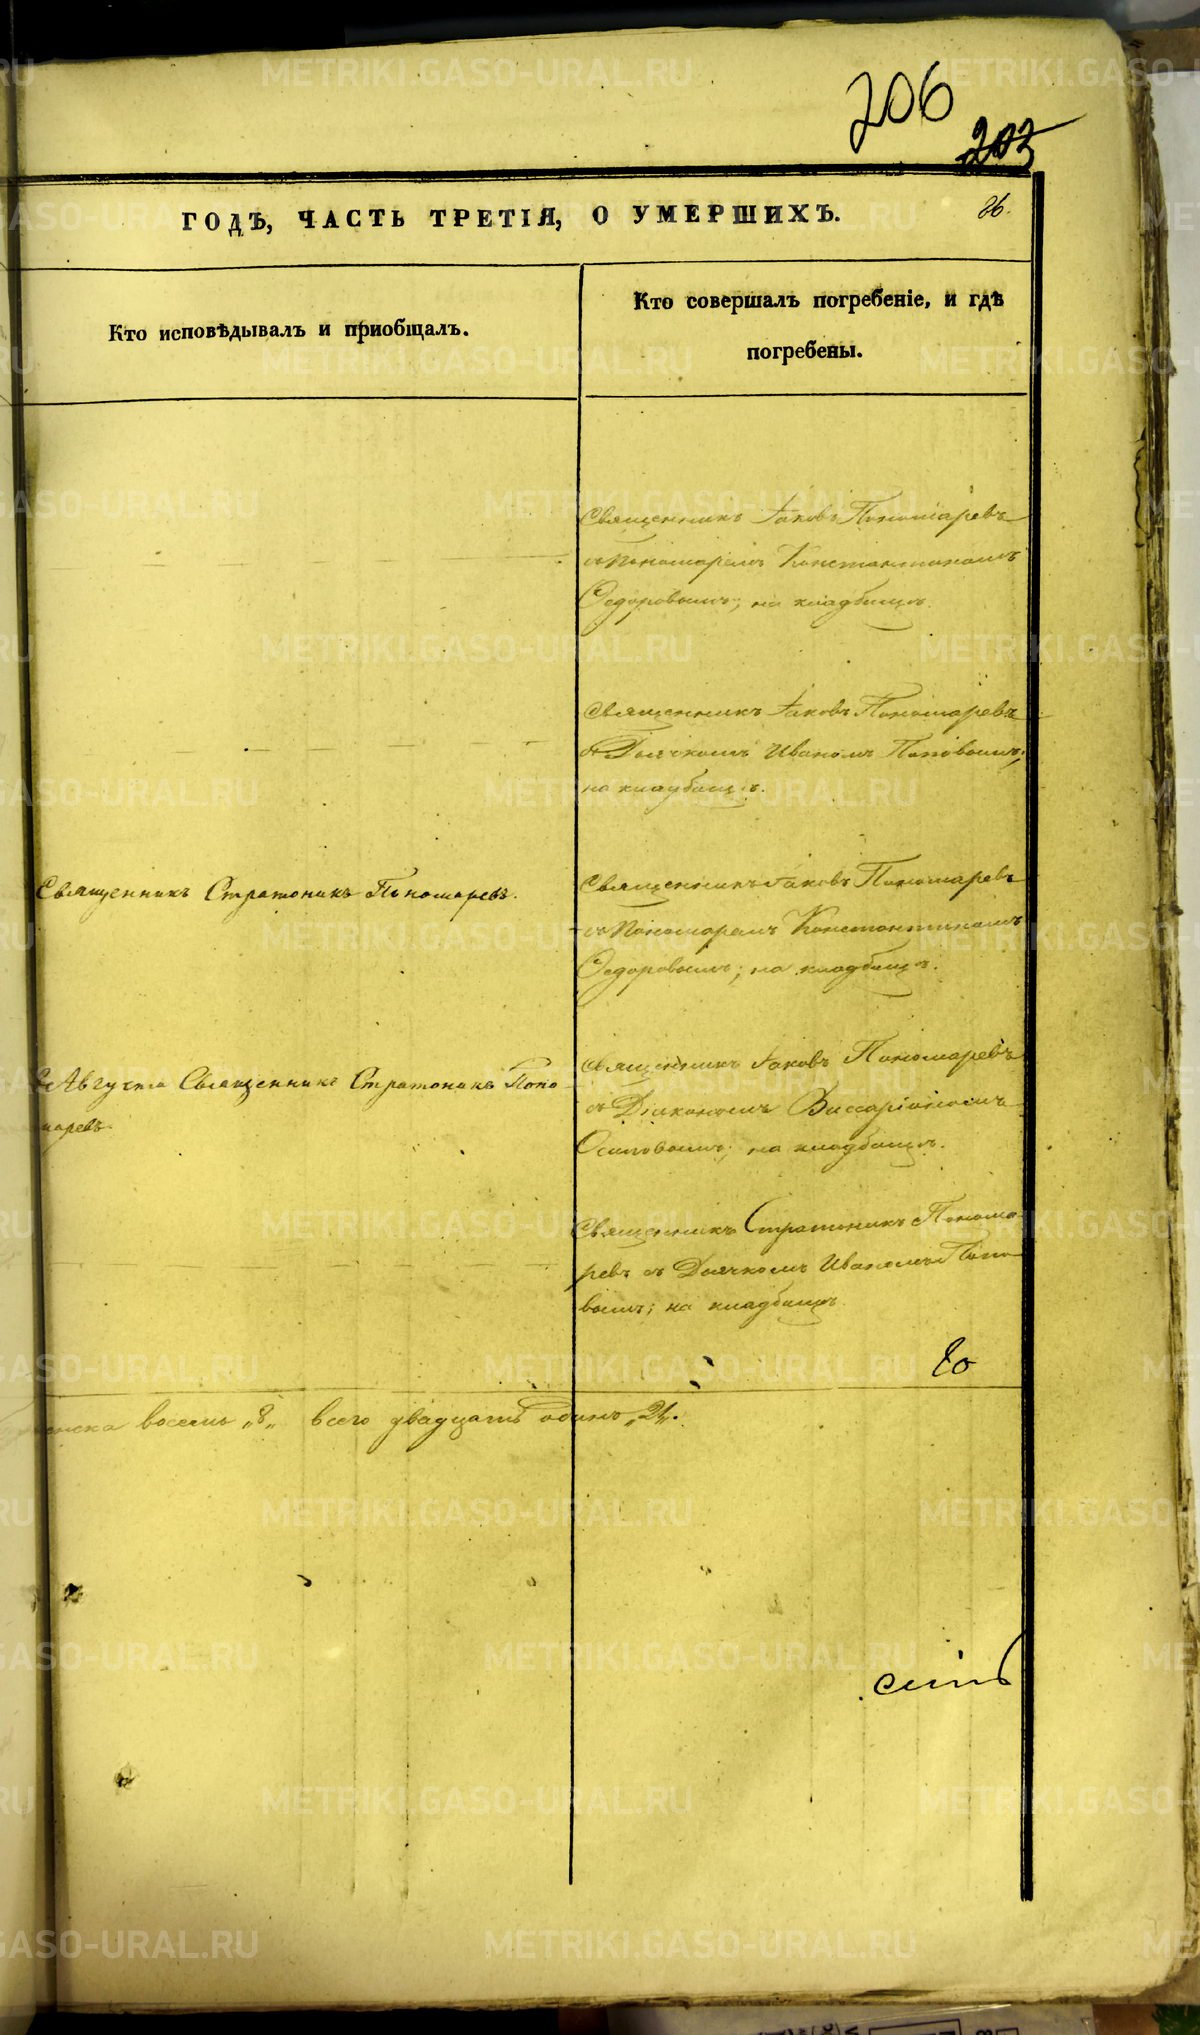 206
203
26.
ГОДѢ, ЧАСТЬ ТРЕТІЯ, О УМЕРШИХЪ.
Кто исповѣдывалъ и приобщалъ.
Кто совершалъ погребеніе, и гдѣ
погребены.
Священникъ Іаковъ Пономаревъ
съ Пономаремъ Константиномъ
Ѳедоровымъ; на кладбищѣ.
Священникъ Іаковъ Пономаревъ
съ Дьячкомъ Иваномъ Поповымъ;
на кладбищѣ.
Священникъ Стратоникъ Пономаревъ.
Священникъ Іаковъ Пономаревъ
съ Пономаремъ Константиномъ
Ѳедоровымъ; на кладбищѣ.
Августа Священникъ Стратоникъ Поно
маревъ.
Священникъ Іаковъ Пономаревъ
съ Діакономъ Виссаріономъ
Осиповымъ; на кладбищѣ.
Священникъ Стратоникъ Понома
ревъ съ Дьячкомъ Иваномъ Попо
вымъ; на кладбищѣ
женска восемь „8„ всего двадцать одинъ „21„.
METRIKI.GASO-URAL.RU